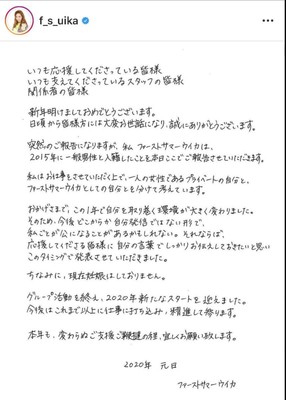 f_s_uika
いつも応援してくださっている皆様
いつも支えてくださっているスタッフの皆様
関係者の皆様
新年明けましておめでとうございます。
日頃から皆様方には大変お世話になり、誠にありがとうございます。
突然のご報告になりますが、私 ファーストサマーウイカは、
2015年に一般男性と入籍したことを本日ここでご報告させていただきます。
私はお仕事をさせていただく上で、一人の女性であるプライベートの自分と、
ファーストサマーウイカとしての自分とを分けて考えています。
おかげさまで、この1年で自分を取り巻く環境が大きく変わりました。
そのため、今後どこからか自分発信ではない形で、
私ごとが公になることがあるかもしれない。それならば、
応援してくださる皆様に自分の言葉でしっかりお伝えしておきたいと思い
このタイミングで発表させていただきました。
ちなみに、現在妊娠はしておりません。
グループ活動を終え、2020年新たなスタートを迎えました。
今後はこれまで以上に仕事に打ち込み、精進して参ります。
本年も、変わらぬご支援ご鞭撻の程、宜しくお願い致します。
2020年 元日
ファーストサマーウイカ